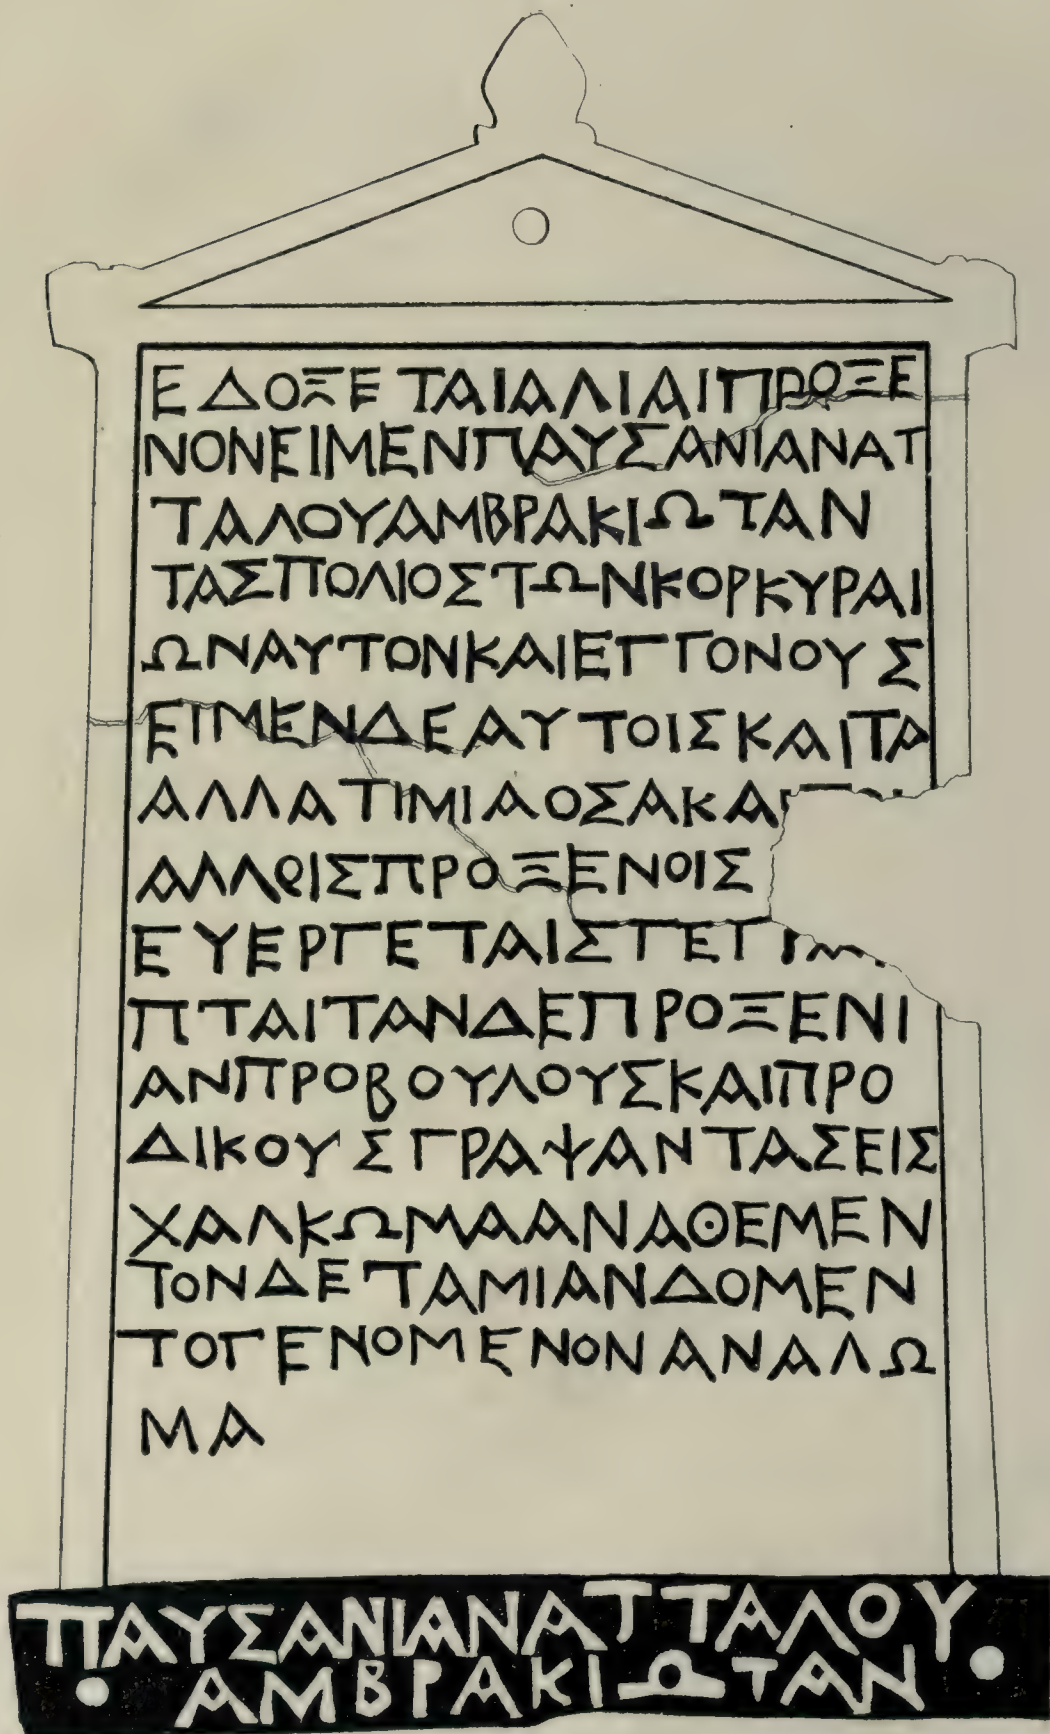 ΕΔΟΞΕΤΑΙΑΛΙΑΙΠΡΟΞΕ
ΝΟΝΕΙΜΕΝΠΑΥΣΑΝΙΑΝΑΤ
ΤΑΛΟΥΑΜΒΡΑΚΙΩΤΑΝ
ΤΑΣΠΟΛΙΟΣΤΩΝΚΟΡΚΥΡΑΙ
ΩΝΑΥΤΟΝΚΑΙΕΓΓΟΝΟΥΣ
ΕΙΜΕΝΔΕΑΥΤΟΙΣΚΑΙΤΑ
ΑΛΛΑΤΙΜΙΑΟΣΑΚΑ
ΑΛΛΟΙΣΠΡΟΞΕΝΟΙΣ
ΕΥΕΡΓΕΤΑΙΣΓΕΓΡ
ΠΤΑΙΤΑΝΔΕΠΡΟΞΕΝΙ
ΑΝΠΡΟΒΟΥΛΟΥΣΚΑΙΠΡΟ
ΔΙΚΟΥΣΓΡΑΨΑΝΤΑΣΕΙΣ
ΧΑΛΚΩΜΑΑΝΑΘΕΜΕΝ
ΤΟΝΔΕΤΑΜΙΑΝΔΟΜΕΝ
ΤΟΓΕΝΟΜΕΝΟΝΑΝΑΛΩ
ΜΑ
ΠΑΥΣΑΝΙΑΝΑΤΤΑΛΟΥ
ΑΜΒΡΑΚΙΩΤΑΝ